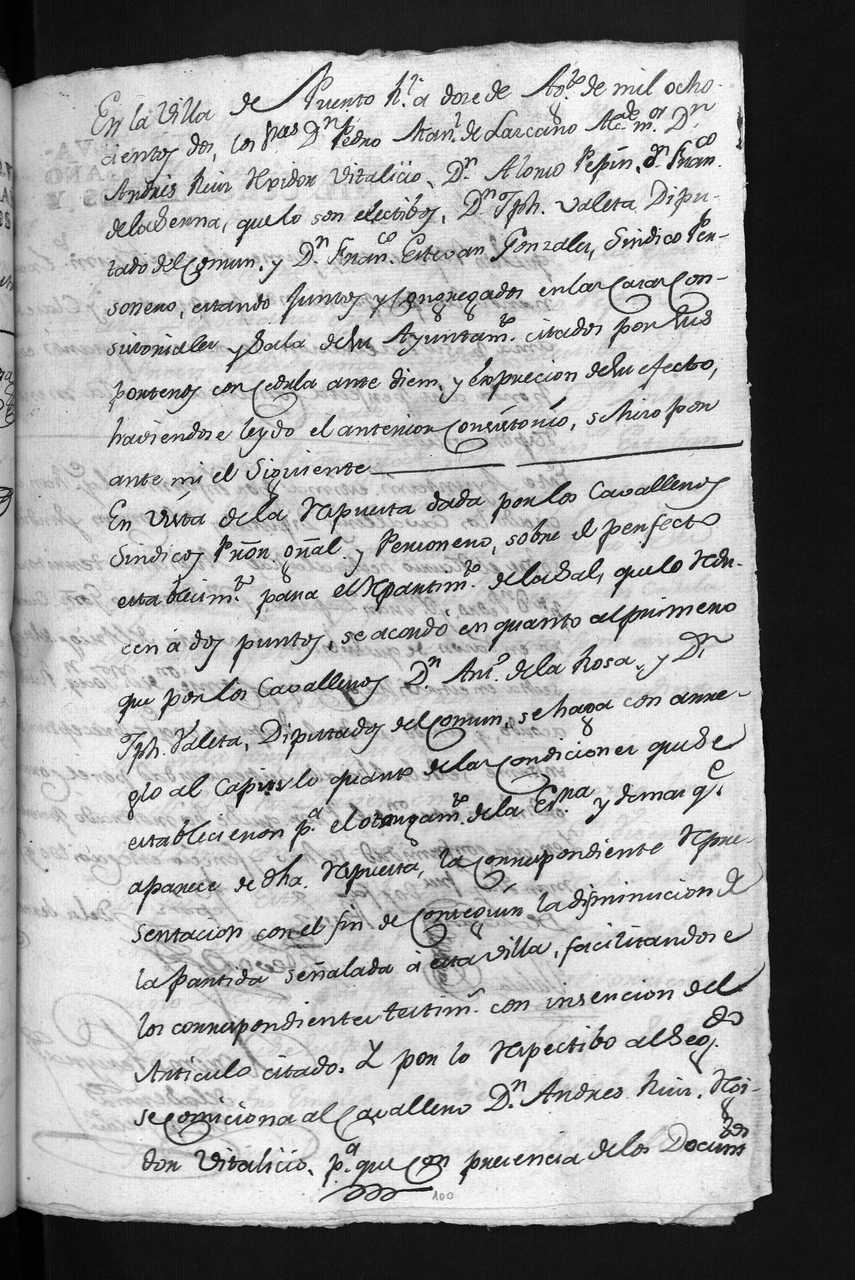 En la Villa de Puerto R.l a doze de Ag.to de mil ocho-
cientos dos, los S.res D.n Pedro Man.l de Lazcano Alc.de m.or D.n
Andres Ruiz Rexidor Vitalicio, D.n Alonso Pepin, D.n Fran.co
de la Serna, que lo son electibos, D.n Jph. Valeta Dipu-
tado del Comun, y D.n Fran.co Estevan Gonzalez, Sindico Per-
sonero, estando juntos y congregados en las Casas Con-
sistoriales y Sala de su Ayuntam.to citados por sus
porteros con Cedula ante diem, y exprecion de su efecto,
haviendose leydo el anterior Consistorio, se hizo por
ante mi el Siguiente
En vista de la Repuesta dada por los Cavalleros
Sindicos Prôn. gñal y Personero, sobre el perfecto
establecim.to para el Repartim.to de la Sal, que lo redu-
cen á dos puntos, se acordó en quanto al primero
que por los Cavalleros D.n Ant.o de la Rosa, y D.n
Jph. Valeta, Diputados del Comun, se haga con arre-
glo al Capitulo quarto de las Condiciones que se
establecieron p.a el otorgam.to de la Es.ra y demas q.e
aparece de dha. Repuesta, la correspondiente Repre-
sentacion con el fin de Conseguir la disminucion de
la partida señalada á esta villa, facilitandose
los correspondientes testim.s con insercion del
Articulo citado. Y por lo respectibo al Seg.do
se comiciona al Cavallero D.n Andres Ruiz, Rexi-
dor Vitalicio, p.a que con precencia de los Docum.tos
100